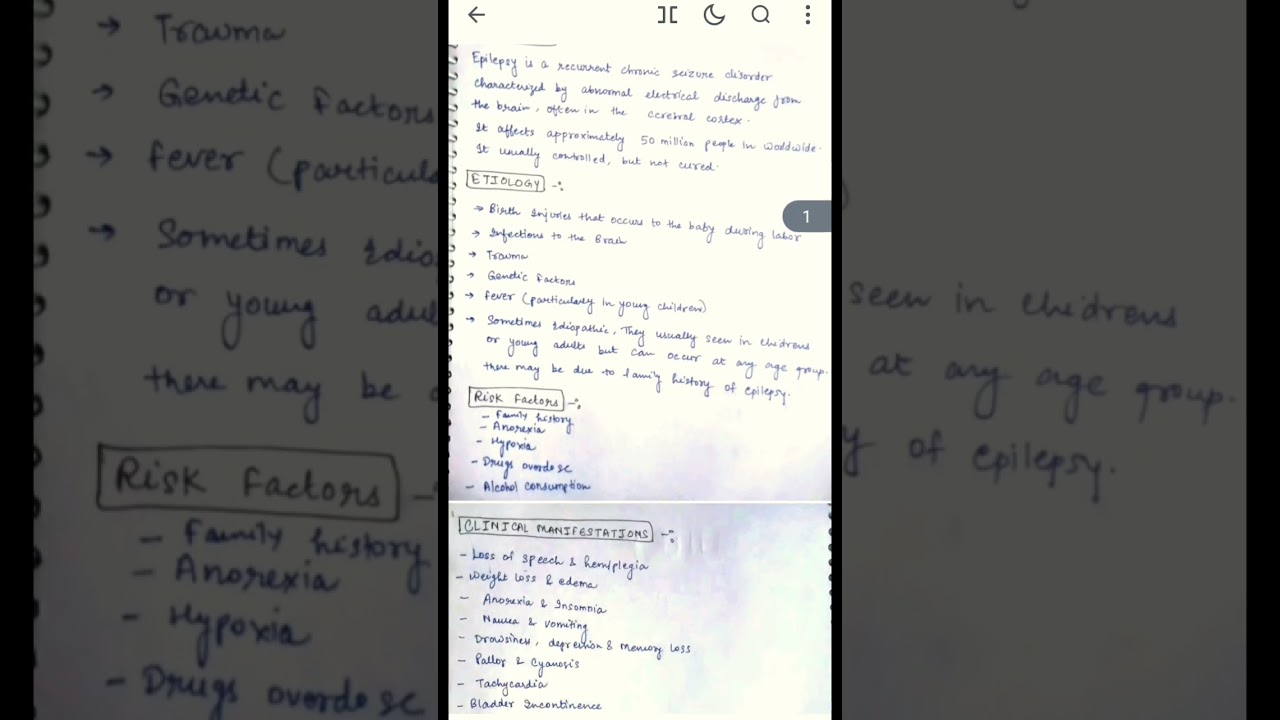 Epilepsy is a recurrent chronic seizure disorder
characterized by abnormal electrical discharge from
the brain, often in the cerebral cortex.
It affects approximately 50 million people in worldwide.
It usually controlled, but not cured.
ETIOLOGY -:
→ Birth Injuries that occurs to the baby during labor
→ Infections to the Brain
→ Trauma
→ Genetic Factors
→ Fever (particularly in young children)
→ Sometimes Idiopathic, They usually seen in childrens
or young adults but can occur at any age group.
there may be due to family history of epilepsy.
1
Risk Factors -:
- Family history
- Anorexia
- Hypoxia
- Drugs overdose
- Alcohol consumption
CLINICAL MANIFESTATIONS -:
- Loss of speech & hemiplegia
- Weight loss & edema
- Anorexia & Insomnia
- Nausea & vomiting
- Drowsiness, depression & memory loss
- Pallor & Cyanosis
- Tachycardia
- Bladder Incontinence
→ Trauma
→ Genetic Factors
→ Fever (particula
→ Sometimes Idio
or young adul
there may be
Risk Factors -
- Family history
- Anorexia
- Hypoxia
- Drugs overdose
seen in childrens
at any age group.
y of epilepsy.